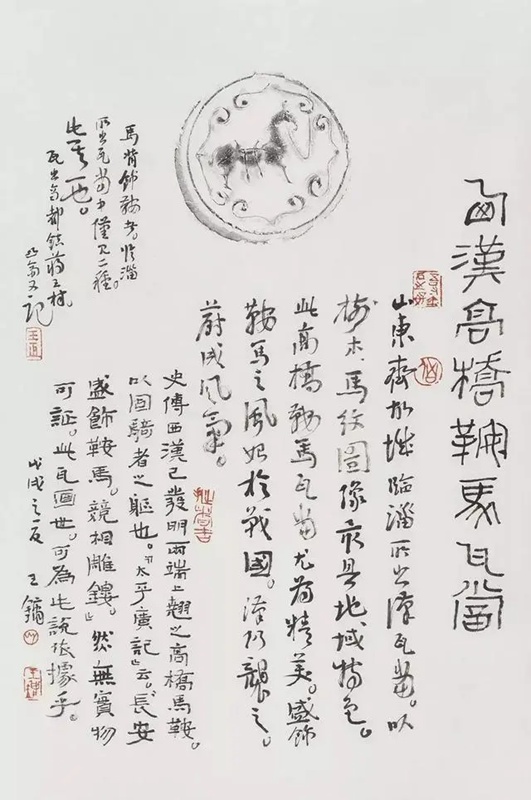 西漢高橋鞍馬瓦當
山東齊故城臨淄所出漢瓦當。以
樹木.馬紋圖像最具地域特色。
此高橋鞍馬瓦當尤為精美。盛飾
鞍馬之風始於戰國。漢仍襲之。
蔚成風氣。
史傳西漢已發明兩端上翹之高橋馬鞍。
以固騎者之軀也。『太平廣記』云「長安
盛飾鞍馬。競相雕鏤」。然無實物
可証。此瓦面世。可為此説依據乎。
戊戌之夏 王鏞
馬背飾鞍者。臨淄
所出瓦當中僅見二種。
此其一也。
瓦出齊都鎮
又記